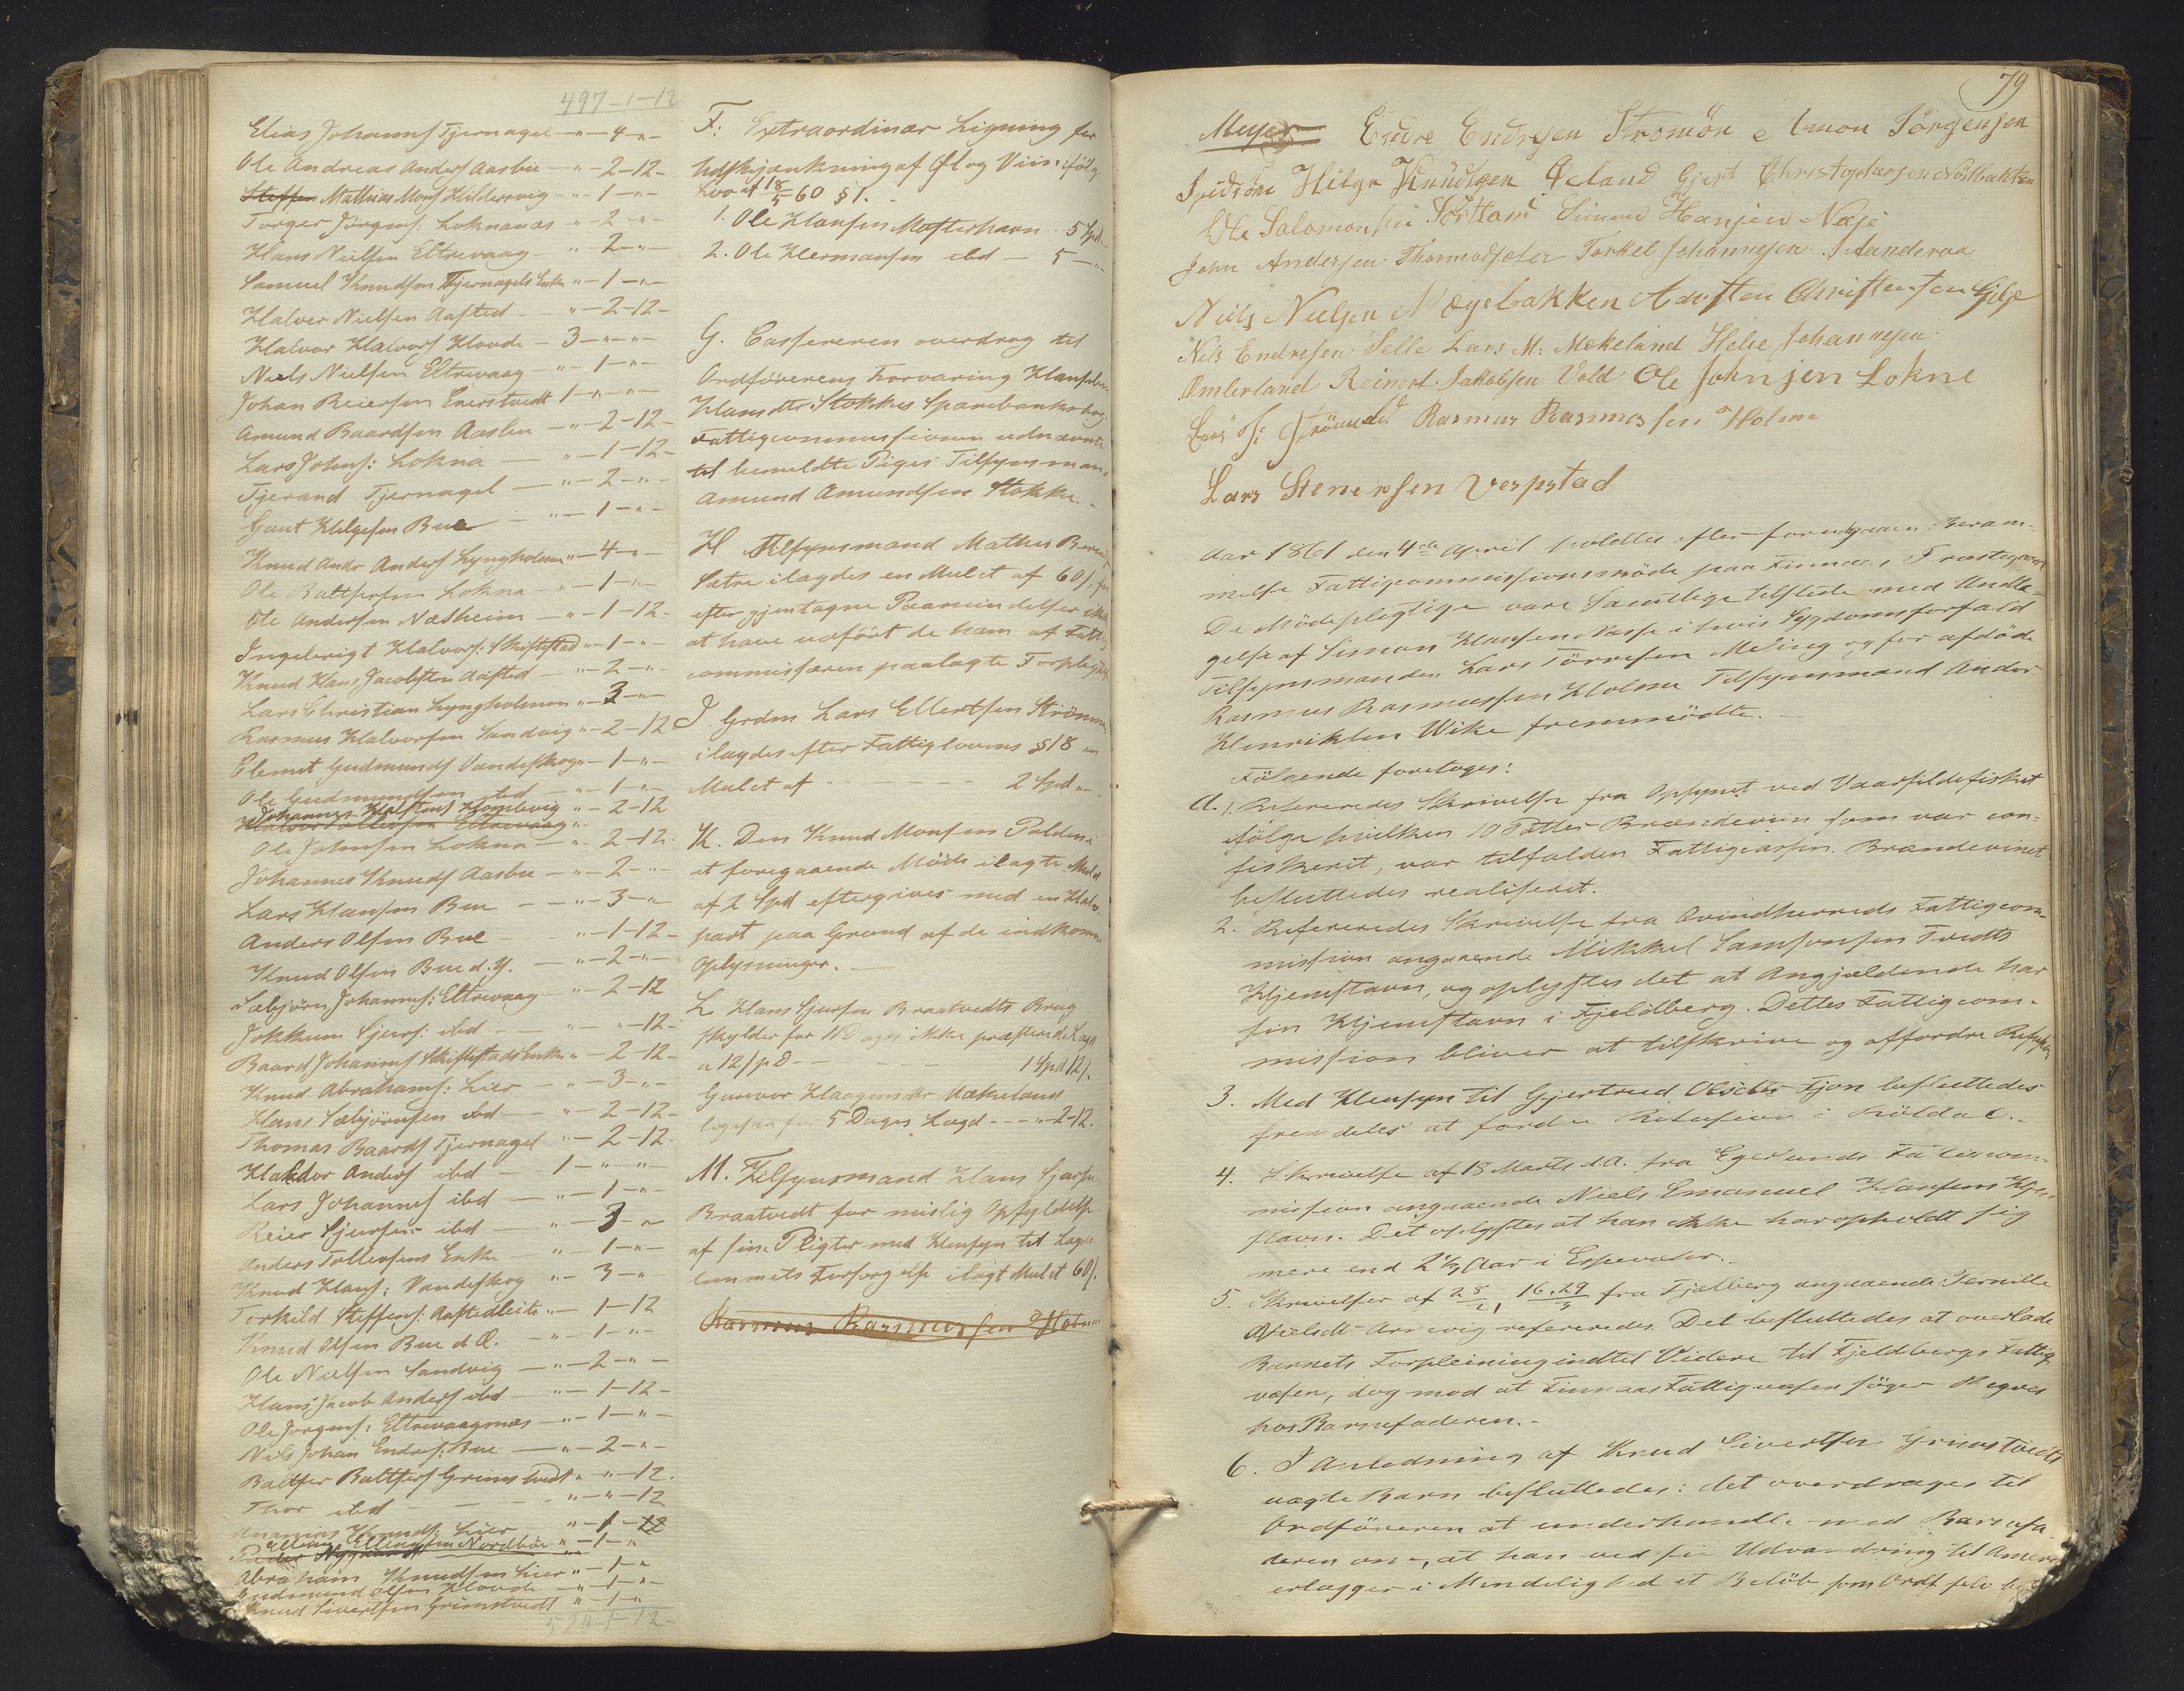 497-1-12
Elias Johannes Tjernagel - " - 4 - " -
Ole Andreas Anders Aasbu - " - 2-12-
Steffen Mathias Mons Hildersvig - " - 1 - " -
Torger Jörgens: Loknanæs - " - 2 - " -
Hans Nielsen Eltrevaag - " - 2 - " -
Samuel Knudsen Tjernagels Enke " - 1 - " -
Halvor Nielsen Aafted - " - 2-12-
Halvor Halvors Hovde - 3 - " - " -
Niels Nielsen Eltrevaag - " - 1 - " -
Johan Reiersen Enerstvedt 1 - " - " -
Amund Baardsen Aasbu - " - 2-12-
Lars Johns: Lokna - " - 1-12-
Tjerand Tjernagel - " - 2 - " -
Gaut Helgesen Bue - " - 1 - " -
Knud Andr Anders Lyngholmen " - 4 - " -
Ole Baltsersen Lokna - " - 1 - " -
Ole Andersen Næsheim - " - 1-12-
Ingebrigt Halvors: Skiftestad " - 1 - " -
Knud Hans Jacobsen Aafted - " - 2 - " -
Lars Christian Lyngholmen " - 3 - " -
Rasmus Halvorsen Sandvig " - 2-12
Clemet Gudmunds Vandeskog " - 1 - " -
Ole Gudmundsen ibd - " - 1 - " -
Johannes " - 2-12
Halvor Tollevsen Eltrevaag "
Ole Johnsen Lokna - " - 2-12-
Johannes Knuds Aasbu - " - 2 - " -
Lars Hansen Bue - " - 3 - "
Anders Olsen Bue - " - 1-12-
Knud Olsen Bue d.Y. - " - 2 - " -
Sæbjörn Johannes: Eltrevaag - " - 2-12
Jokkum Sjurs: ibd - " - " - 12-
Baard Johannes Skiftestads Enke " - 2-12-
Knud Abrahams: Lier - " - 3 - " -
Hans Sæbjörnsen ibd - " - 2-12-
Thomas Baards Tjernagel " - 2-12-
Haldor Anders ibd - 1 - " - " -
Lars Johannes ibd - " - 1 - " -
Reier Sjursen ibd - " - 3 - " -
Anders Tollefsens Enke - " - 1 - " -
Knud Hans: Vandeskog " - 3 - "
Torkild Steffens: Aaftedleite " - 1-12
Knud Olsen Bue d.Æ. - " - 1 - " -
Ole Nielsen Sandvig - " - 2 - " -
Hans Jacob Anders ibd - " - 1-12-
Ole Jorgens: Eltrevaagnæs - " - 1 - " -
Nils Johan Endres: Bue - " - 2 - " -
Baltser Baltsers Grimstvedt " - " - 12.
Thor ibd - " - " - 12
Ananias Knuds: Lier " - 1 - 12
Elling Ellingsen Nordböe " - 1 - "
Peder Nygaard
Abraham Knudsen Lier " - 1 - "
Gudmund Olsen Hovde - " - 1 - " -
Knud Sivertsen Grimstvedt " - 1 - "
F: Extraordinær Ligning for
Udskjænkning af Øl og Viin ifölge
Lov af 18/5 60 § 1.
1. Ole Hansen Mosterhavn - 5 Spd -
2. Ole Hermansen ibd - 5 - "
G. Cassereren overdrog til
Ordförerens Forvaring
Hansdtr: Stokkes Sparebanksbog.
Fattigcommissionen udnævnte
til bemeldte Piges Tilsynsmand
Amund Amundsen Stokke.
H Tilsynsmand Mathis
Sætre ilagdes en Mulct af 60 s, for
efter gjentagne Paamindelser ikke
at have udfört de ham af Fattig
commissæren paalagte Forpligtelser
I. Grdm Lars Ellertsen Strömme
ilagdes efter Fattiglovens § 18 en
Mulct af - - - 2 Spd "
K. Den Knud Monsen Polden i
et foregaaende Möde ilagte Mulct
af 2 Spd eftergives med en Halv-
part paa Grund af de indkomne
Oplysninger.
L Hans Sjursen Braatvedts Brug
skylder for 11 Dages ikke præsterede Lægd
a 12 s pD - - - 1 Spd 12 s.
Gunvor Haagensdtr Mækeland
ligesaa for 5 Dages Lægd - - - " - 2-12.
M. Tilsynsmand Hans Sjursen
Braatvedt for mislig Opfyldelse
af sine Pligter med Hensyn til Lægds-
lemmets Forsorgelse ilagt Mulct 60 s.
Rasmus Rasmussen Holme
79
Meyer Endre Endresen Stromön Simon Jörgensen
Helge Knudtsen Øeland Gjert Christophersen
Ole Salomonsen Tortland Simon Hansen Næse
John Andersen Thormodsæter Torkel Johannesen Aanderaa
Niels Nielsen Mægebakken Adusten Christensen Gilje
Nils Endresen Selle Lars M: Mækeland Helge Johannesen
Omlerland Reinert Jakobsen Vold Ole Johnsen Lokne
Lars E Strömme Rasmus Rasmussen Holme
Lars Stenersen Vespestad
Aar 1861 den 4de April holdtes efter foregaaen Beram-
melse Fattigcommissionsmöde paa Finnaas Præstegaard
De Mödepligtige vare samtlige tilstede med Undta-
gelse af Simon Hansen Næsse i hvis Sygdomsforfald
Tilsynsmanden Lars Törresen Meling og for afdöde
Rasmus Rasmussen Holme Tilsynsmand Anders
Henriksen Wike fremmödte.
Fölgende foretoges:
A. 1. Refereredes Skrivelse fra Opsynet ved Vaarsildefisket
ifölge hvilken 10 Potter Brændeviin som var con-
fiskeret, var tilfalden Fattigcassen. Brændevinet
besluttedes realiseret.
2. Refereredes Skrivelse fra Qvindherreds Fattigcom-
mission angaaende Mikkel Samsonsen Tvedts
Hjemstavn, og oplystes det at Angjældende har
sin Hjemstavn i Fjeldberg. Dettes Fattigcom-
mission bliver at tilskrive og affordre Refusion
3. Med Hensyn til Gjertrud Olsdtr Fjon besluttedes
fremdeles at fordre Refusion i Röldal.
4. Skrivelse af 13 Marts d.A. fra Egersunds Fattigcom-
mission angaaende Niels Emanuel Hansens Hjem-
stavn. Det oplystes at han ikke har opholdt sig
mere end 2 1/2 Aar i Espevær.
5. Skrivelser af 28/2, 16.29/3 fra Fjelberg angaaende Pernille
Nielsdtr Arnevig refereredes. Det besluttedes at overlade
Barnets Forpleining indtil Videre til Fjeldbergs Fattig
væsen, dog mod at Finnaas Fattigvæsen söger Regres
hos Barnefaderen.
6. I Anledning af Knud Sivertsen Grimstvedts
uægte Barn besluttedes: det overdrages til
Ordföreren at underhandle med Barnefa-
deren om, at han ved sin Udvandring til Amerika
erlægger i Mindelighed et Belöb som Ordf selv